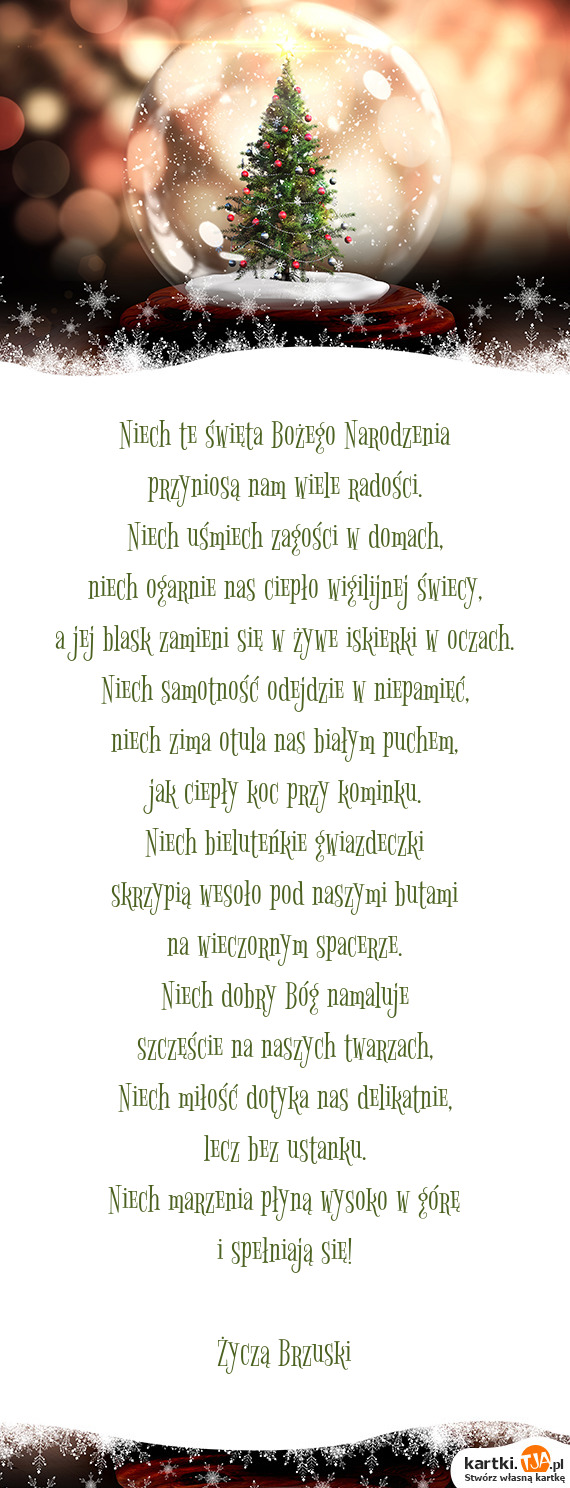 Niech te święta Bożego Narodzenia
przyniosą nam wiele radości.
Niech uśmiech zagości w domach,
niech ogarnie nas ciepło wigilijnej świecy,
a jej blask zamieni się w żywe iskierki w oczach.
Niech samotność odejdzie w niepamięć,
niech zima otula nas białym puchem,
jak ciepły koc przy kominku.
Niech bieluteńkie gwiazdeczki
skrzypią wesoło pod naszymi butami
na wieczornym spacerze.
Niech dobry Bóg namaluje
szczęście na naszych twarzach,
Niech miłość dotyka nas delikatnie,
lecz bez ustanku.
Niech marzenia płyną wysoko w górę
i spełniają się!
Życzą Brzuski
kartki.TJA.pl
Stwórz własną kartkę